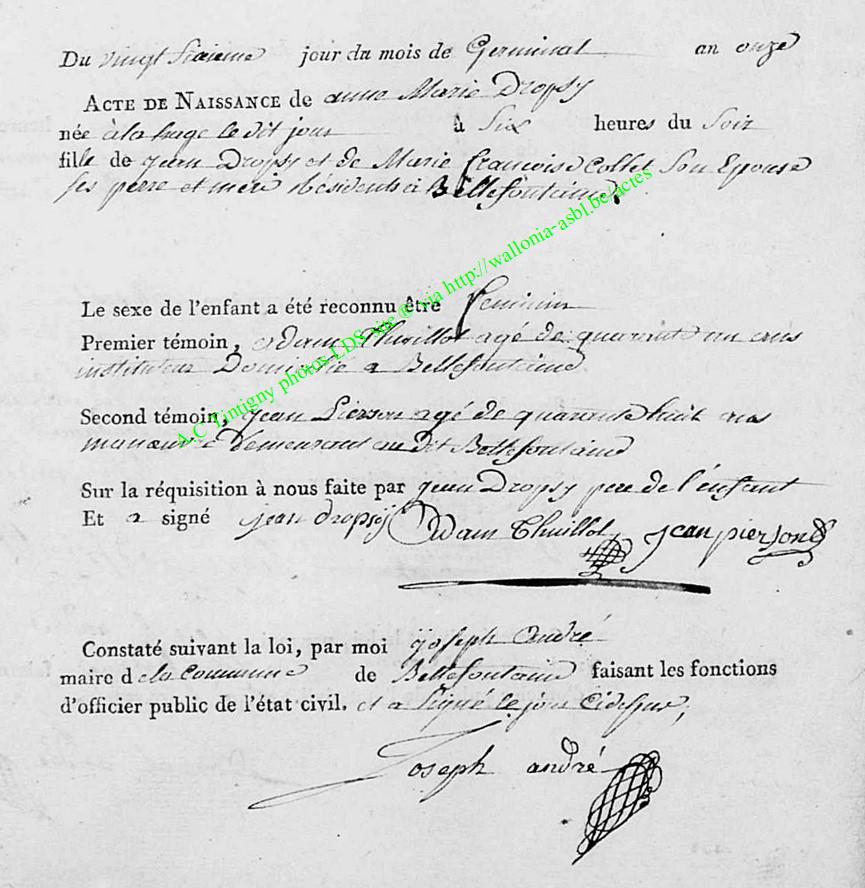 Du vingt sixieme jour du mois de Germinal an onze
ACTE DE NAISSANCE de anne Marie Dropsy
née à la huge le dit jour à Six heures du Soir
fille de jean Dropsy et de Marie françoise Collet Son Epouse
ses perre et mere Résidents à Bellefontaine,
Le sexe de l'enfant a été reconnu être feminin
Premier témoin, Adam Thuillot agé de quarente un ans
instituteur Domicilie a Bellefontaine
Second témoin, jean Pierson agé de quarente huit ans
manœuvre Demeurant au dit Bellefontaine
Sur la réquisition à nous faite par jean Dropsy pere de l'enfant
Et a signé jean dropsÿ Adam Thuillot jean pierson
Constaté suivant la loi, par moi joseph andré
maire de la Commune de Bellefontaine faisant les fonctions
d'officier public de l'état civil. et a Signé le jour Cidessus,
Joseph andré
A.C Tintigny photos LDS, site @ via http://wallonia-asbl.be/actes